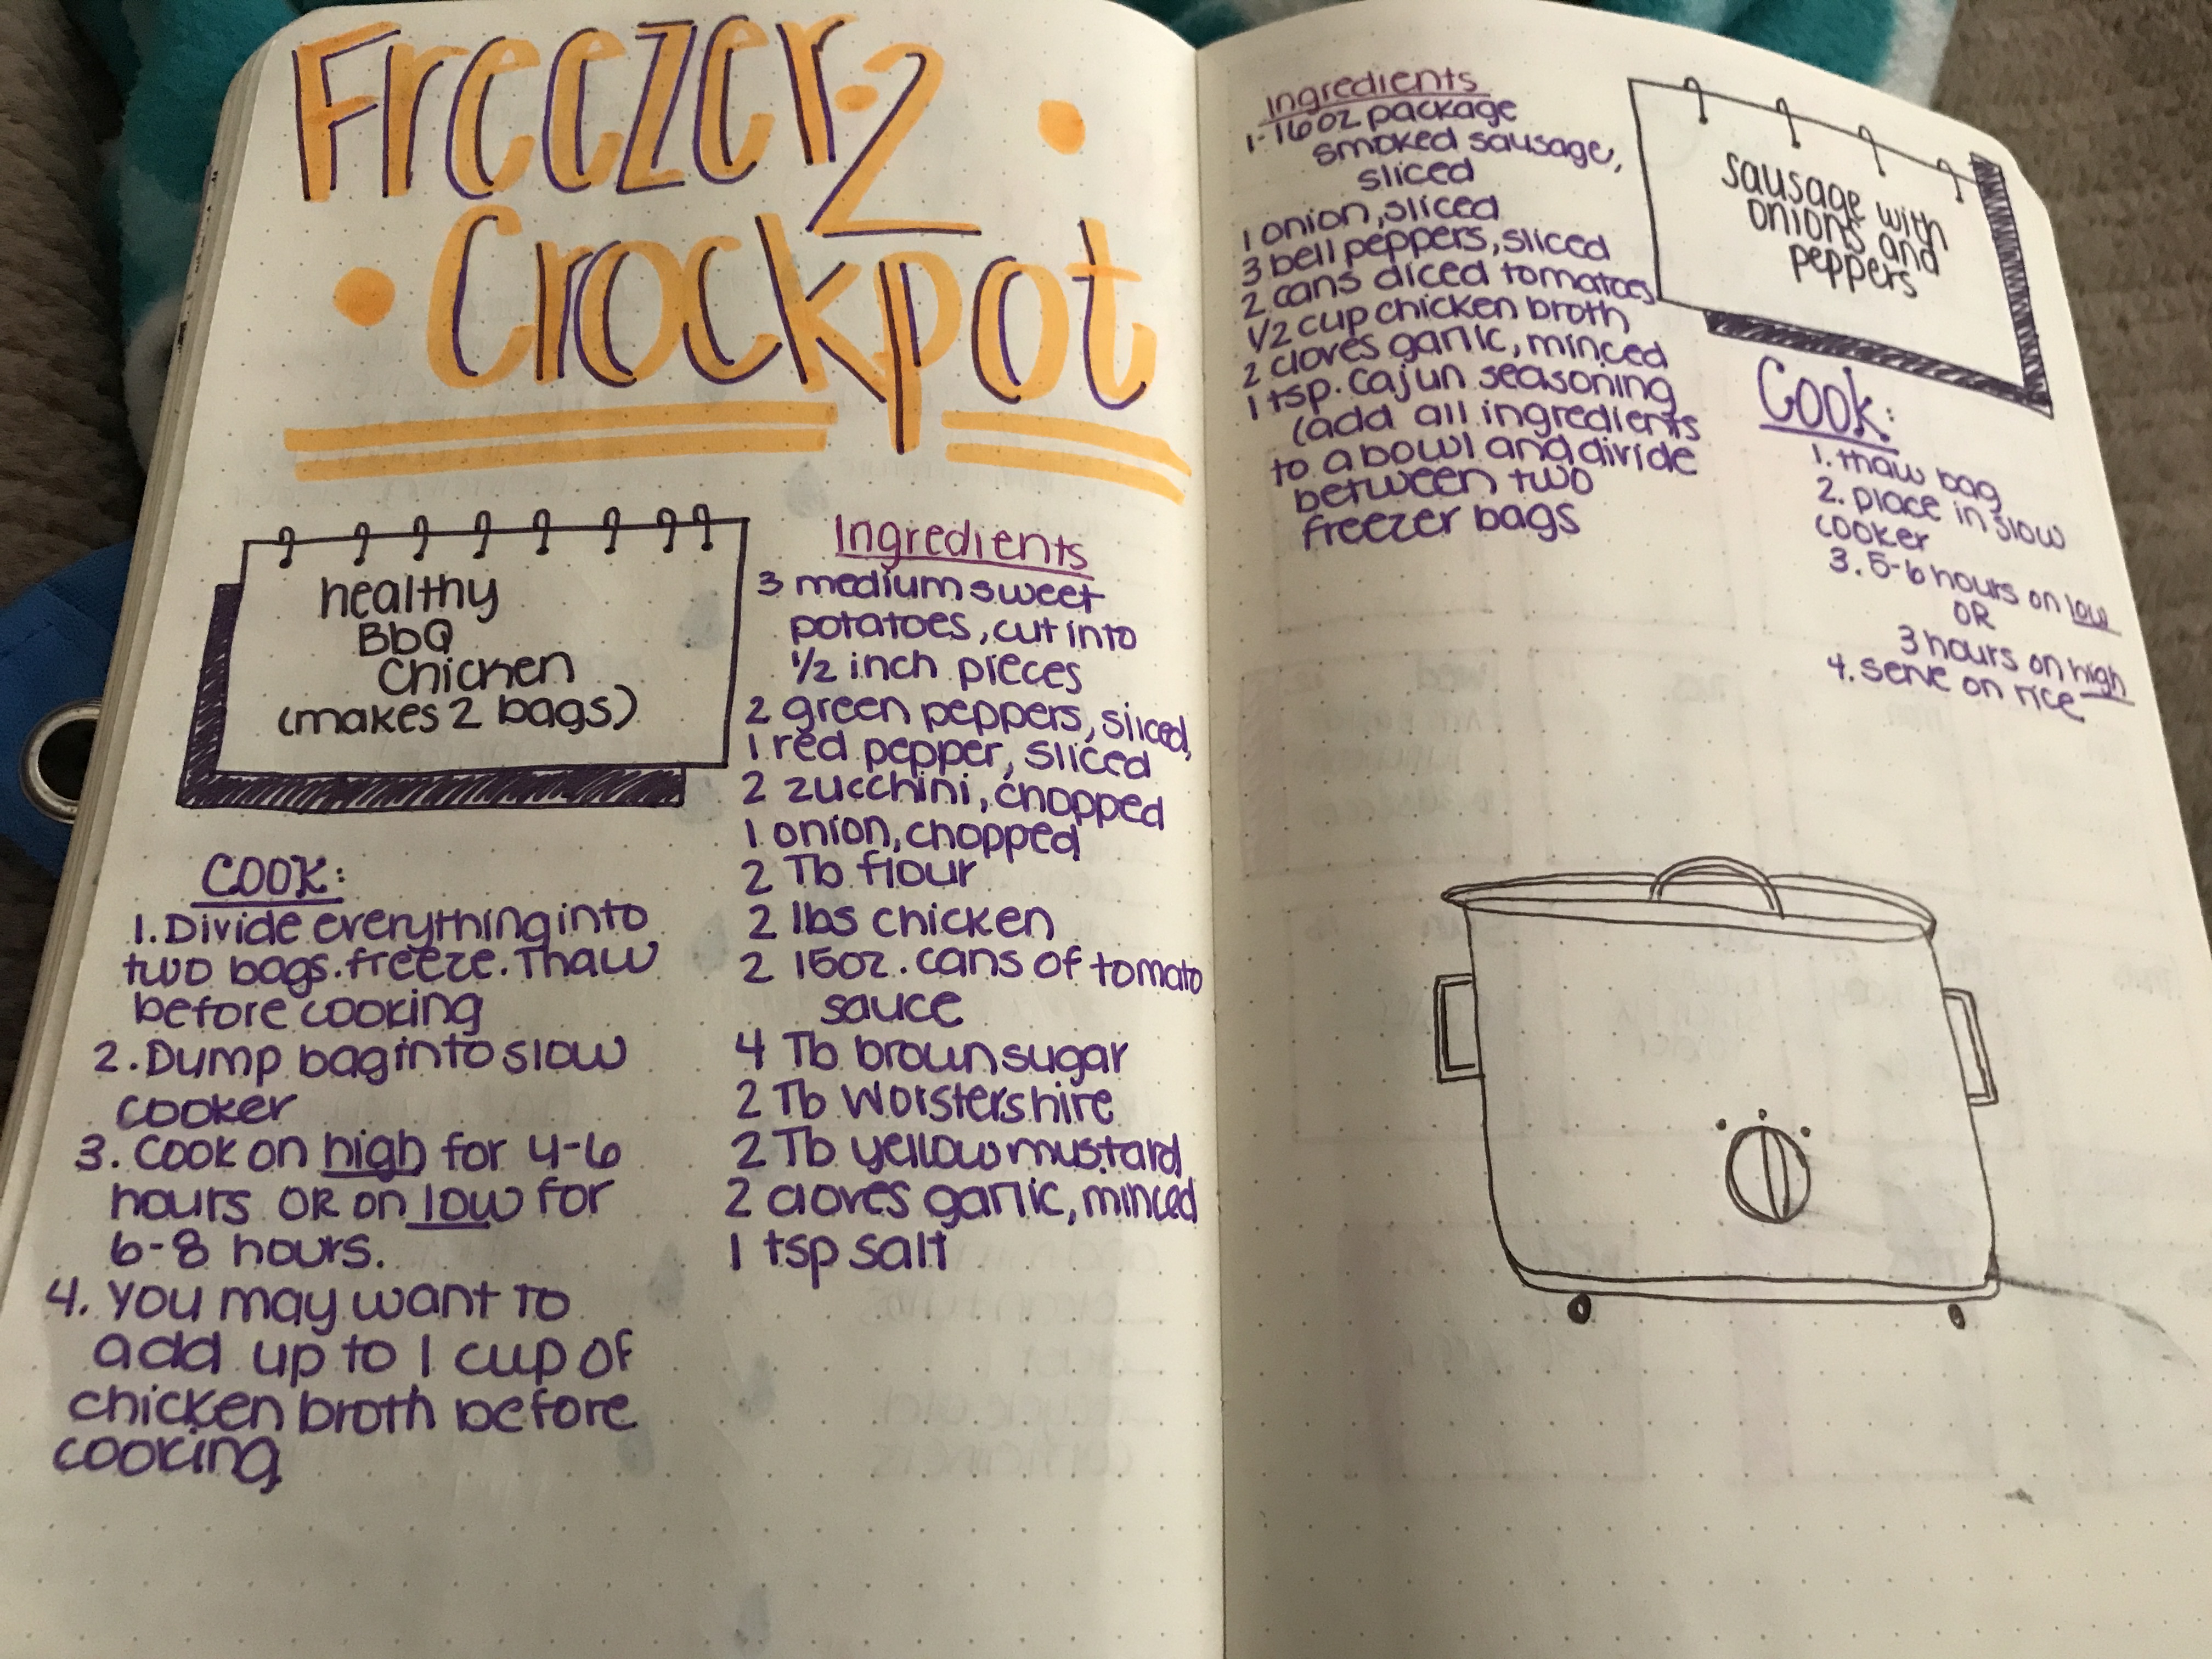 Freezer 2
Crockpot
healthy
BbQ
Chicken
(makes 2 bags)
COOK:
1. Divide everything into
two bags. freeze. Thaw
before cooking
2. Dump bag into slow
cooker
3. Cook on high for 4-6
hours OR on low for
6-8 hours.
4. You may want to
add up to 1 cup of
chicken broth before
cooking
Ingredients
3 medium sweet
potatoes, cut into
1/2 inch pieces
2 green peppers, sliced,
1 red pepper, sliced
2 zucchini, chopped
1 onion, chopped
2 Tb flour
2 lbs chicken
2 15oz. cans of tomato
sauce
4 Tb brown sugar
2 Tb Worstershire
2 Tb yellow mustard
2 cloves garlic, minced
1 tsp salt
Ingredients
1-16oz package
smoked sausage,
sliced
1 onion, sliced
3 bell peppers, sliced
2 cans diced tomatoes
1/2 cup chicken broth
2 cloves garlic, minced
1 tsp. Cajun seasoning
(add all ingredients
to a bowl and divide
between two
freezer bags
sausage with
onions and
peppers
Cook:
1. thaw bag
2. place in slow
cooker
3. 5-6 hours on low
OR
3 hours on high
4. serve on rice